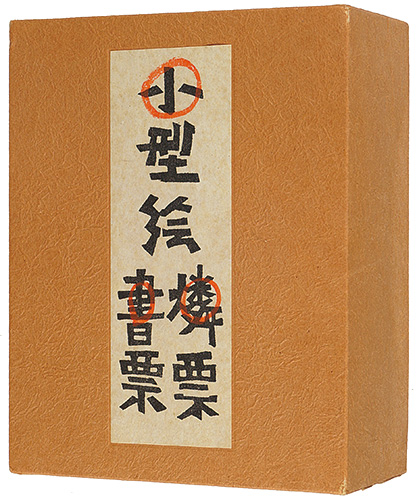 小型絵
燐票
書票